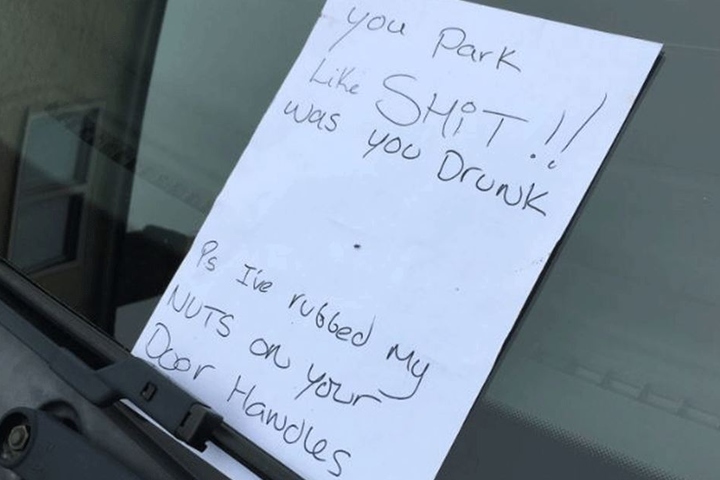 you Park
Like SHiT!!
was you Drunk
Ps I've rubbed my
NUTS on your
Door Handles